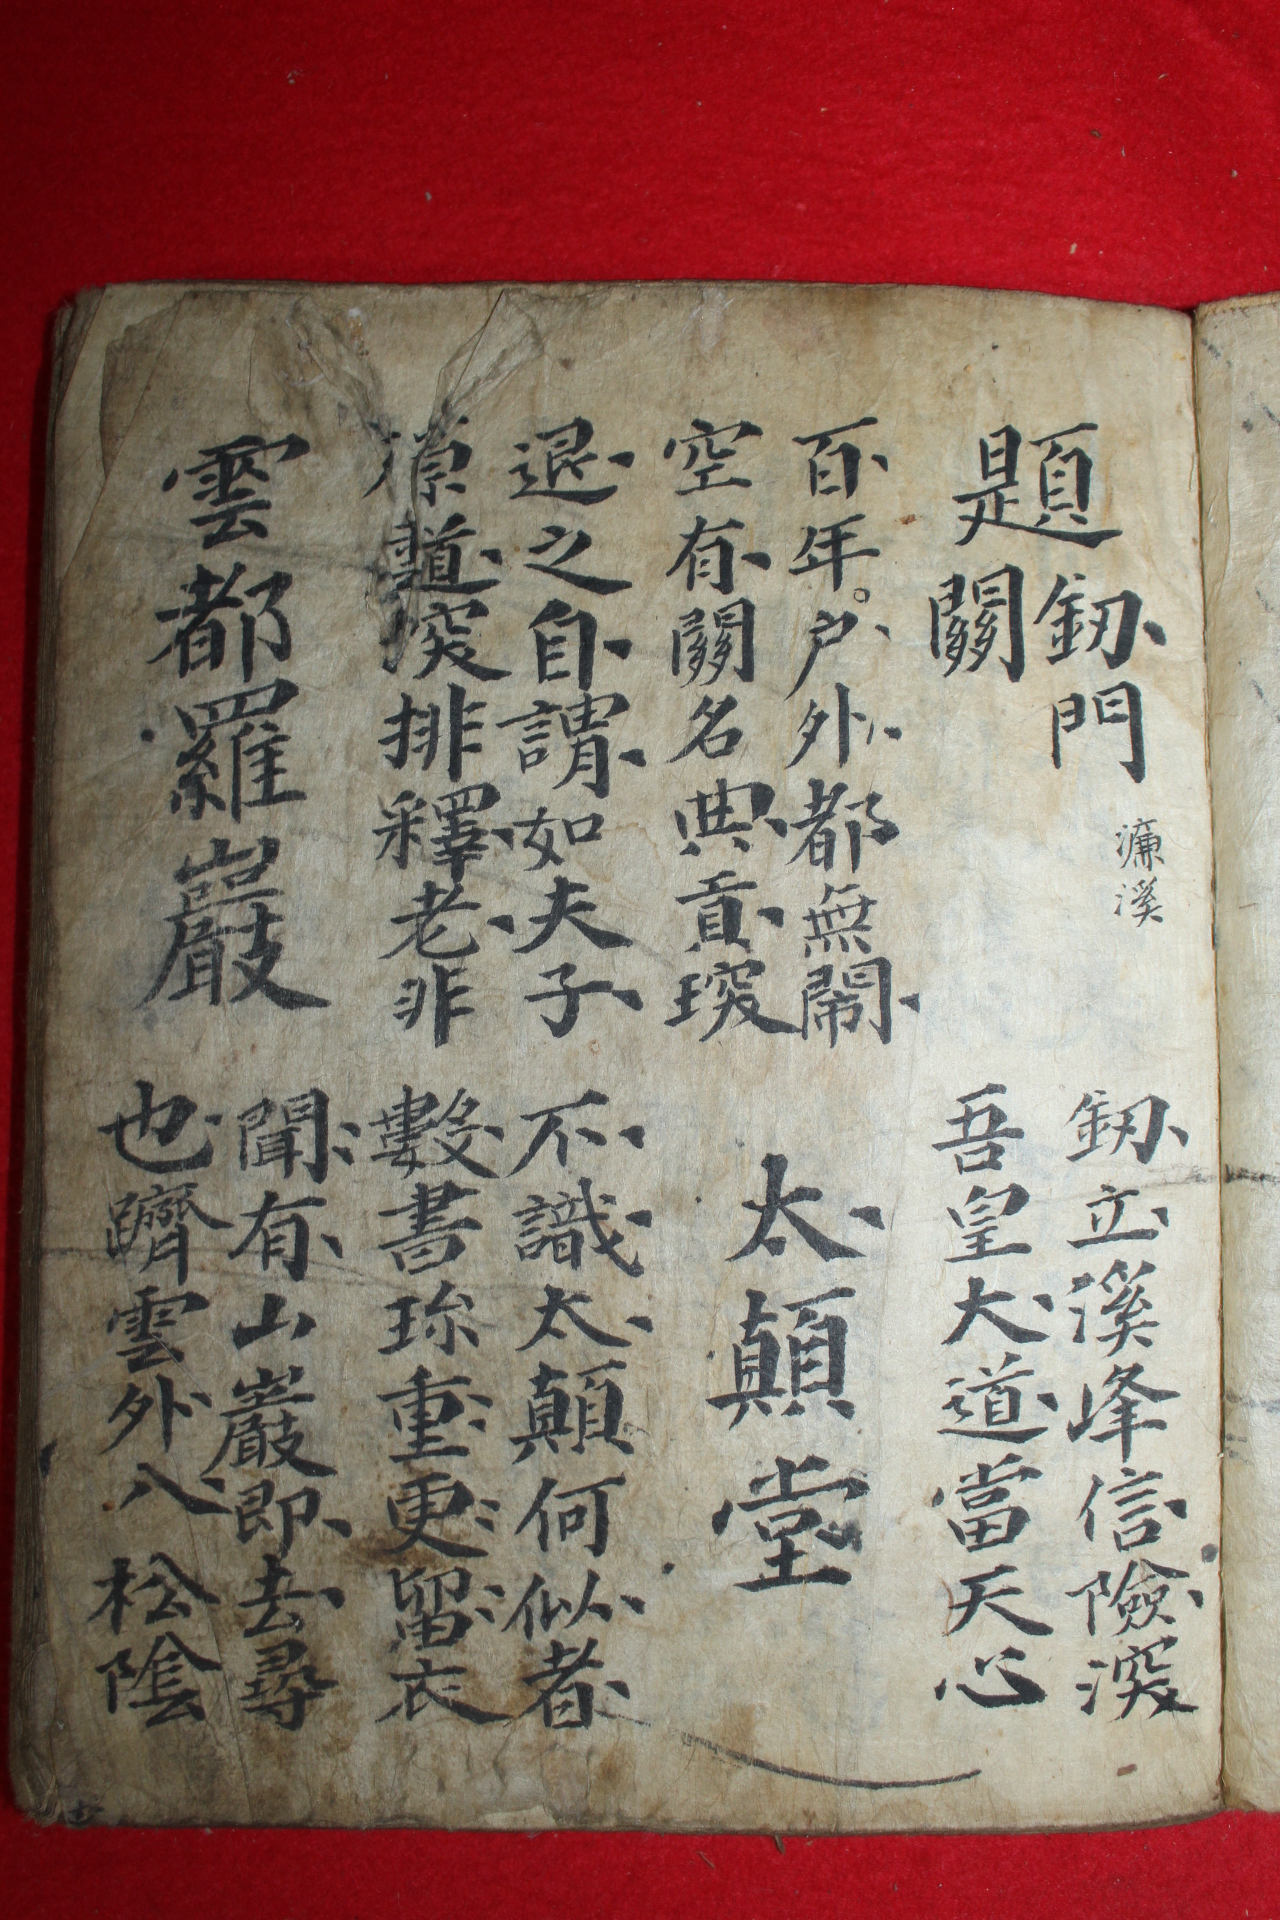 題釼門關
濂溪
釼立溪峰信險深
吾皇大道當天心
百年戶外都無鬧
空有關名典貢琛
太顛堂
退之自謂如夫子
原道深排釋老非
不識太顛何似者
數書珎重更留衣
雲都羅巖
聞有山巖即去尋
也躋雲外八松陰